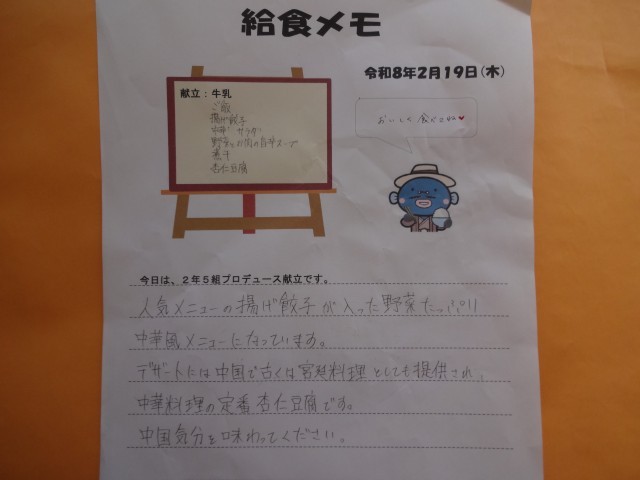 給食メモ
令和8年2月19日(木)
献立：牛乳
ご飯
揚げ餃子
中華サラダ
野菜とお肉の旨辛スープ
煮干
杏仁豆腐
おいしく食べてね♥
今日は、２年５組プロデュース献立です。
人気メニューの揚げ餃子が入った野菜たっぷり
中華風メニューになっています。
デザートには中国で古くは宮廷料理としても提供され、
中華料理の定番杏仁豆腐です。
中国気分を味わってください。